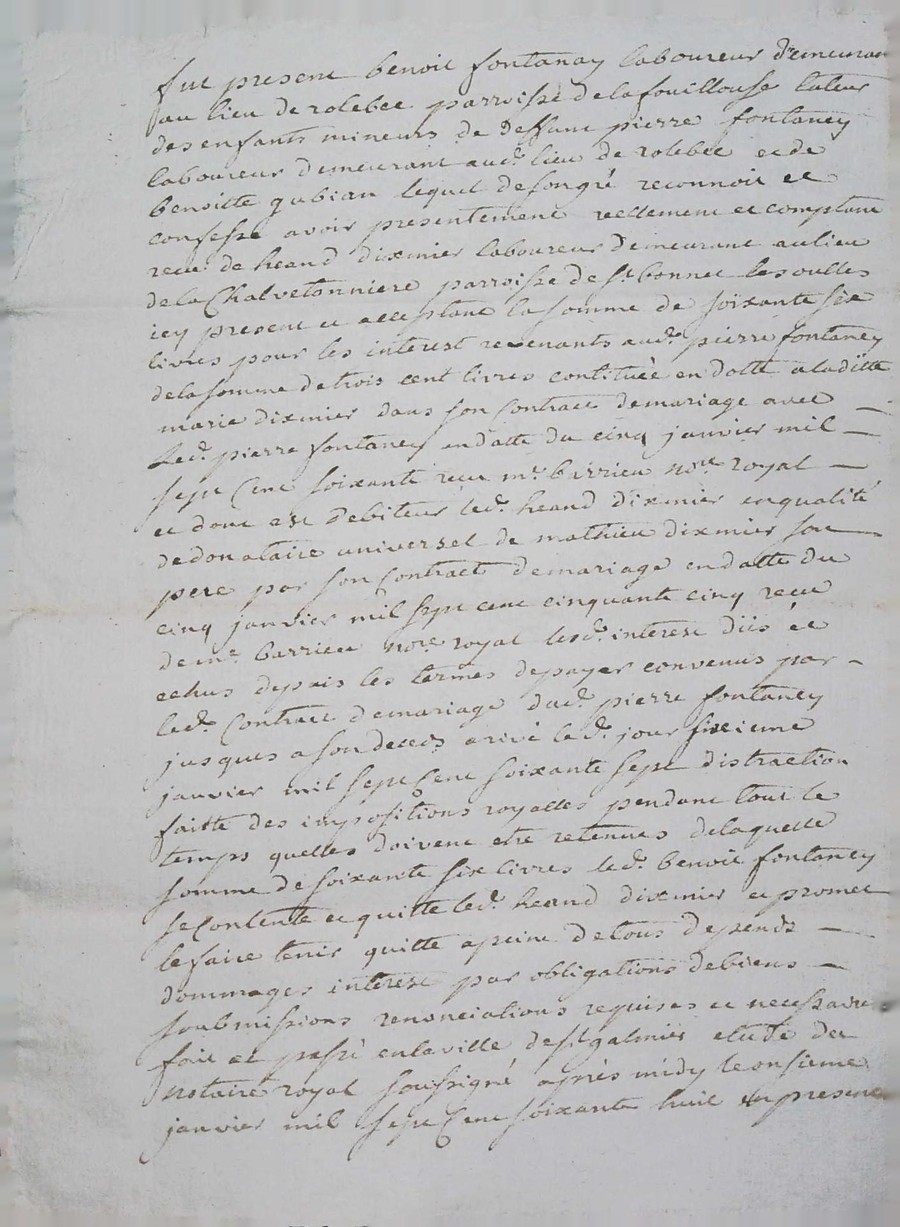 fut present benoit fontanay laboureur demeurant
au lieu de rolebee parroisse de la fouillouse tuteur
des enfants mineurs de deffunt pierre fontaney
laboureur demeurant aud. lieu de rolebee et de
benoitte gubian lequel de son gré reconnoit et
confesse avoir presentement reellement et comptant
receu de heand dixmier laboureur demeurant au lieu
de la Chalvetonniere parroisse de St bonnet les oulles
icy present et acceptant la somme de soixante six
livres pour les interest revenants aud. pierre fontaney
de la somme de trois cent livres contituée en dotte a laditte
marie dixmier dans son Contract de mariage avec
Led. pierre fontaney en datte du cinq janvier mil —
sept Cent soixante receu me. barrieu nore royal —
et dont est debiteur led. heand dixmier en qualité
de donataire universel de mathieu dixmier son —
pere par son Contract de mariage en datte du
cinq janvier mil sept cent cinquante cinq receu
de me. barrieu nore. royal lesd. interest dus et
echus depuis les termes de payer convenus par —
led. Contract de mariage dud. pierre fontaney
jusques a son deceds arivé led. jour sixieme
janvier mil sept Cent soixante sept distraction
faitte des impositions royalles pendant tout le
temps quelles doivent etre retenues de laquelle
somme de soixante six livres led. benoit fontaney
se Contente et quitte led. heand dixmier et promet
le faire tenir quitte a peine de tous depends —
dommages interest par obligations de biens —
soubmissions renonciations requises et necessaires
fait et passé en la ville de St galmier etude du
notaire royal soussigné après midy le onsieme
janvier mil sept Cent soixante huit en presence